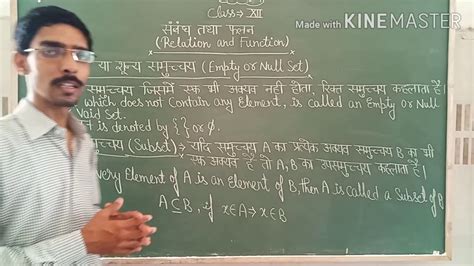 Class⇒ XII
Made with KINEMASTER
संबंध तथा फलन
(Relation and Function)
या शून्य समुच्चय (Empty or Null Set)
समुच्चय जिसमें एक भी अवयव नहीं होता, रिक्त समुच्चय कहलाता है।
which does not contain any Element, is called an Empty or Null
Void Set.
is denoted by { } or ø.
समुच्चय (Subset)⇒ यदि समुच्चय A का प्रत्येक अवयव समुच्चय B का भी
एक अवयव है तो A, B का उपसमुच्चय कहलाता है।
very Element of A is an Element of B, then A is called a Subset of B
A⊆B, if x∈A⇒x∈B